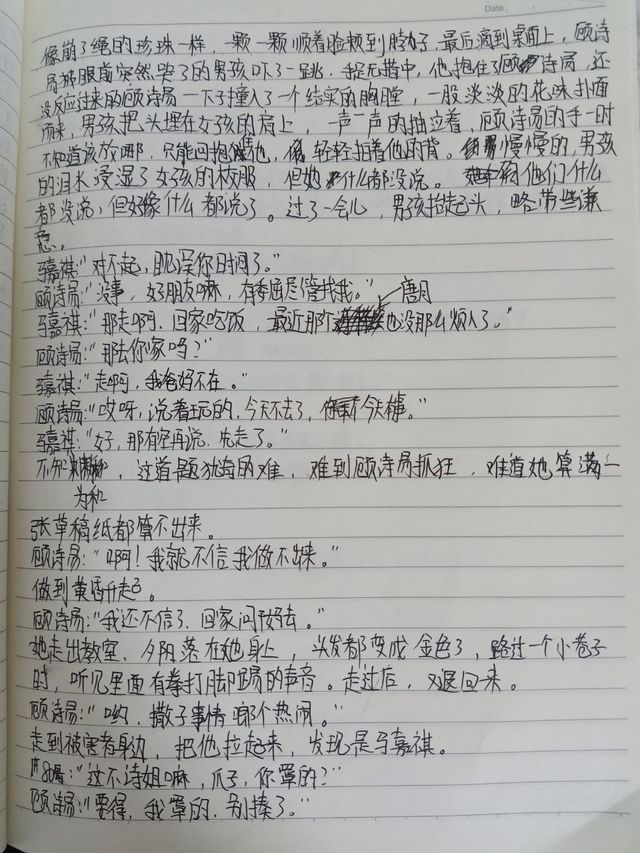 Date.
像崩了绳的珍珠一样，一颗一颗顺着脸颊到脖子，最后滴到桌面上，顾诗
局被眼前突然哭了的男孩吓了一跳，手足无措中，他抱住了顾诗局，还
没反应过来的顾诗局一下子撞入了一个结实的胸膛，一股淡淡的花味扑面
而来，男孩把头埋在女孩的肩上，一声一声的抽泣着，顾诗局的手一时
不知道该放哪，只能回抱他，轻轻拍着他的背。慢慢的，男孩
的泪水浸湿了女孩的校服，但她什么都没说。他们什么
都没说，但好像什么都说了。过了一会儿，男孩抬起头，略带些谦
意。
马嘉祺："对不起，耽误你时间了。"
顾诗局："没事，好朋友嘛，有委屈尽管找我。" 唐月
马嘉祺："那走啊，回家吃饭，最近那个也没那么烦人了。"
顾诗局："那去你家吗？"
马嘉祺："走啊，我爸妈不在。"
顾诗局："哎呀，说着玩的，今天不去了，今天有事。"
马嘉祺："好，那有空再说，先走了。"
不知，这道题独奇的难，难到顾诗局抓狂，难道她算满一
为何
张草稿纸都算不出来。
顾诗局："啊！我就不信我做不出来。"
做到黄昏升起。
顾诗局："我还不信了，回家问我妈去。"
她走出教室、夕阳落在她身上，头发都变成金色了，路过一个小巷子
时，听见里面有拳打脚踢的声音。走过后，又退回来。
顾诗局："哟，撒子事情那个热闹。"
走到被害者身边，把他拉起来，发现是马嘉祺。
"这不诗姐嘛，爪子，你罩的？"
顾诗局："要得，我罩的，别揍了。"